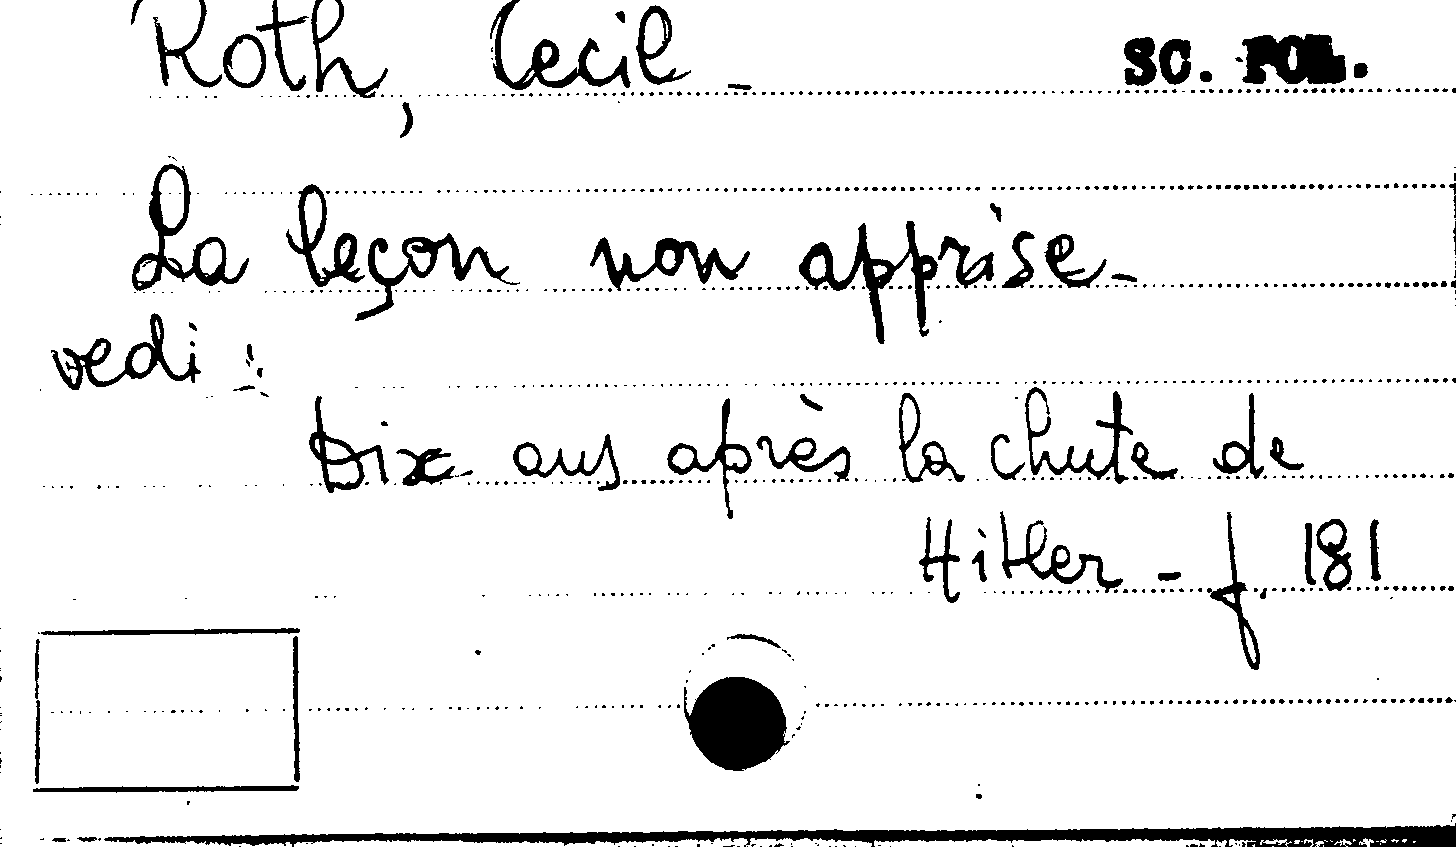 Roth, Cecil - SC. POL.
La leçon non apprise -
vedi :
Dix ans après la chute de
Hitler - f. 181